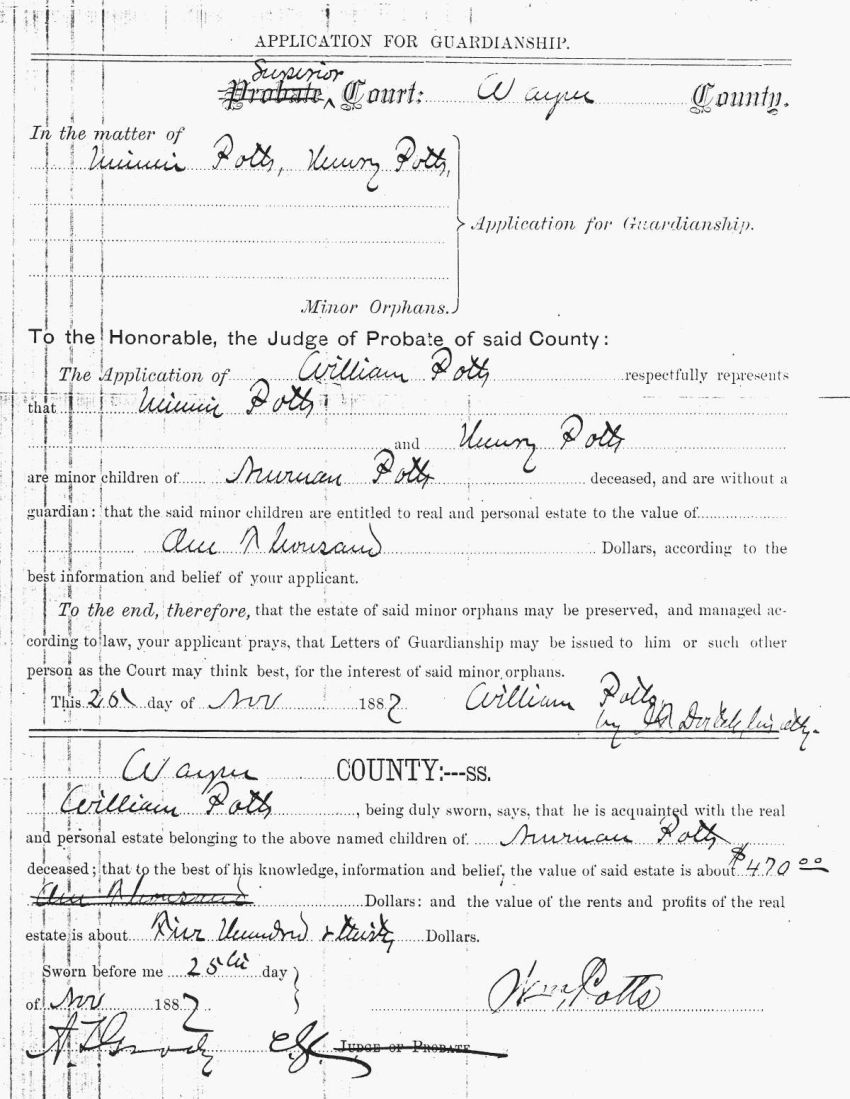 APPLICATION FOR GUARDIANSHIP.
Superior
Probate ^ Court: Wayne County.
In the matter of
Minnie Potts, Henry Potts,
Application for Guardianship.
Minor Orphans.
To the Honorable, the Judge of Probate of said County:
The Application of William Potts respectfully represents
that Minnie Potts
and Henry Potts
are minor children of Nurman Potts deceased, and are without a
guardian: that the said minor children are entitled to real and personal estate to the value of
One Thousand Dollars, according to the
best information and belief of your applicant.
To the end, therefore, that the estate of said minor orphans may be preserved, and managed ac-
cording to law, your applicant prays, that Letters of Guardianship may be issued to him or such other
person as the Court may think best, for the interest of said minor orphans.
This day of Nov 1887 William Potts,
by his atty.
Wayne COUNTY:---SS.
William Potts, being duly sworn, says, that he is acquainted with the real
and personal estate belonging to the above named children of Nurman Potts
deceased; that to the best of his knowledge, information and belief, the value of said estate is about $470 00
One Thousand Dollars: and the value of the rents and profits of the real
estate is about Five Hundred & thirty Dollars.
Sworn before me 25th day
of Nov 1887 Wm. Potts
A. T. Grady CSC JUDGE OF PROBATE